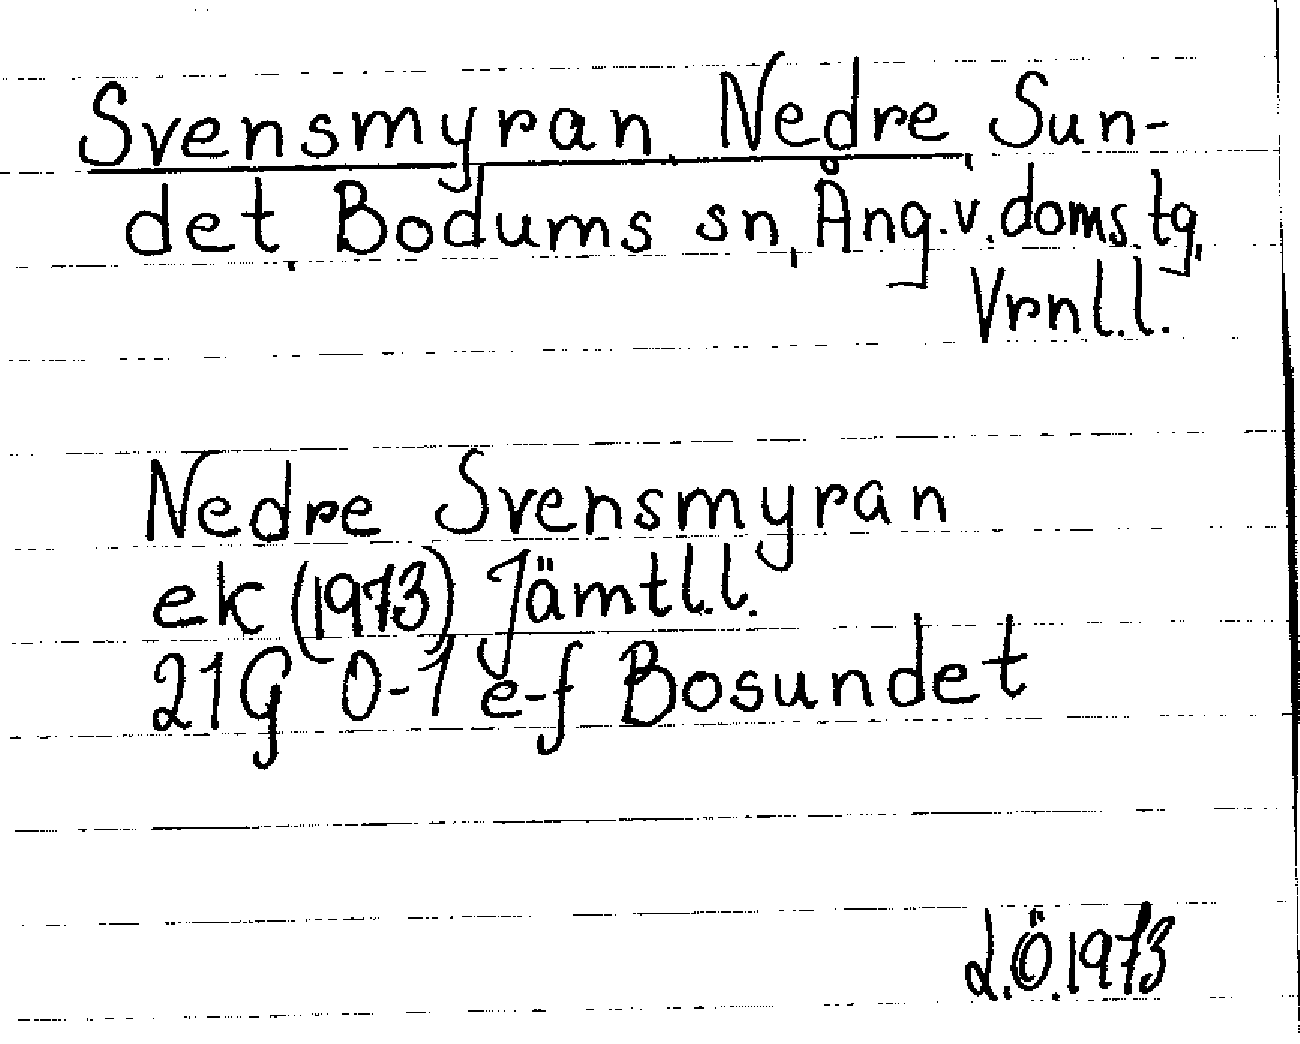 Svensmyran, Nedre, Sun-
det, Bodums sn, Ång.v.doms.tg,
Vrnl.l.
Nedre Svensmyran
ek (1973) Jämtl.l.
21G 0-1 e-f Bosundet
L.Ö.1973